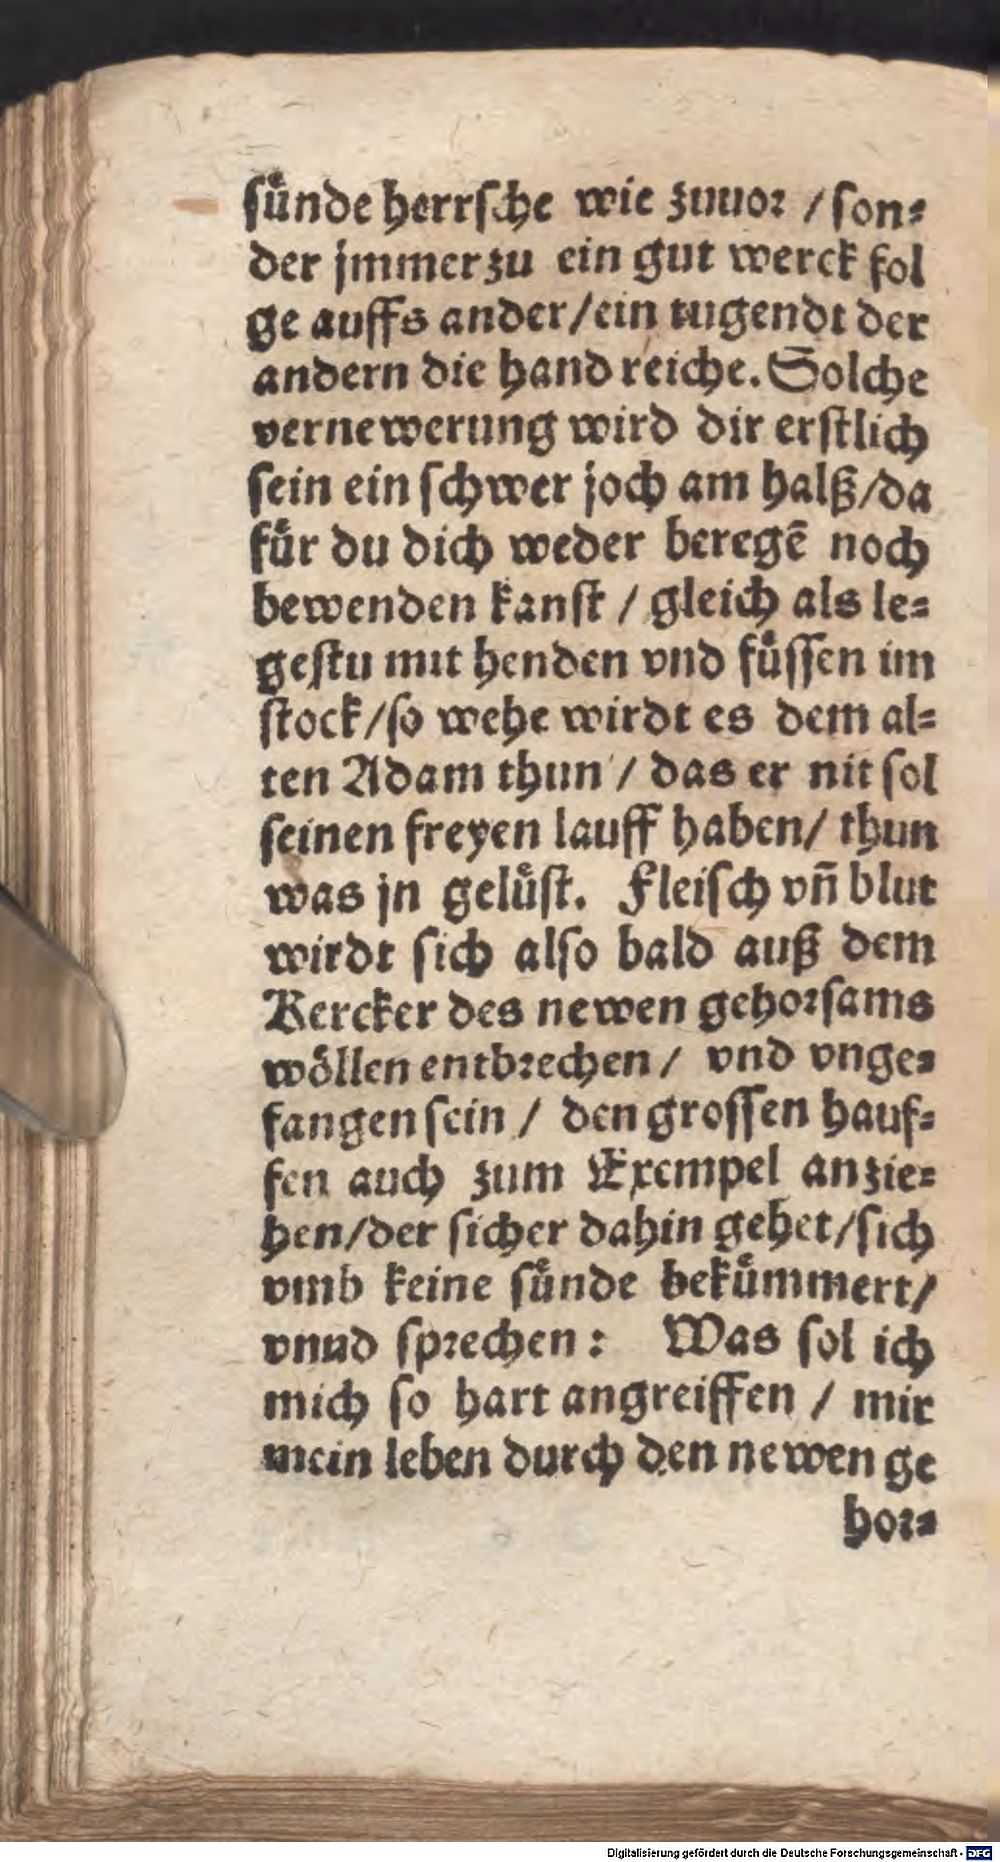 ſuͤnde herrſche wie zuuor / ſon⸗
der jmmerzu ein gut werck fol
ge auffs ander/ein tugendt der
andern die hand reiche. Solche
vernewerung wird dir erſtlich
ſein ein ſchwer joch am halß/da
fuͤr du dich weder beregẽ noch
bewenden kanſt / gleich als le⸗
geſtu mit henden vnd fuͤſſen im
ſtock/ſo wehe wirdt es dem al⸗
ten Adam thun / das er nit ſol
ſeinen freyen lauff haben/ thun
was jn geluͤſt. Fleiſch vñ blut
wirdt ſich alſo bald auß dem
Kercker des newen gehorſams
woͤllen entbrechen / vnd vnge⸗
fangen ſein / den groſſen hauf⸗
fen auch zum Exempel anzie⸗
hen/der ſicher dahin gehet/ſich
vmb keine ſuͤnde bekuͤmmert/
vnnd ſprechen: Was ſol ich
mich ſo hart angreiffen / mir
mein leben durch den newen ge
hor⸗
Digitalisierung gefördert durch die Deutsche Forschungsgemeinschaft - DFG